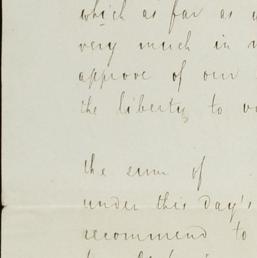 which as far as
very much in
approve of our
the liberty to
the sum of
under this Day's
recommend to